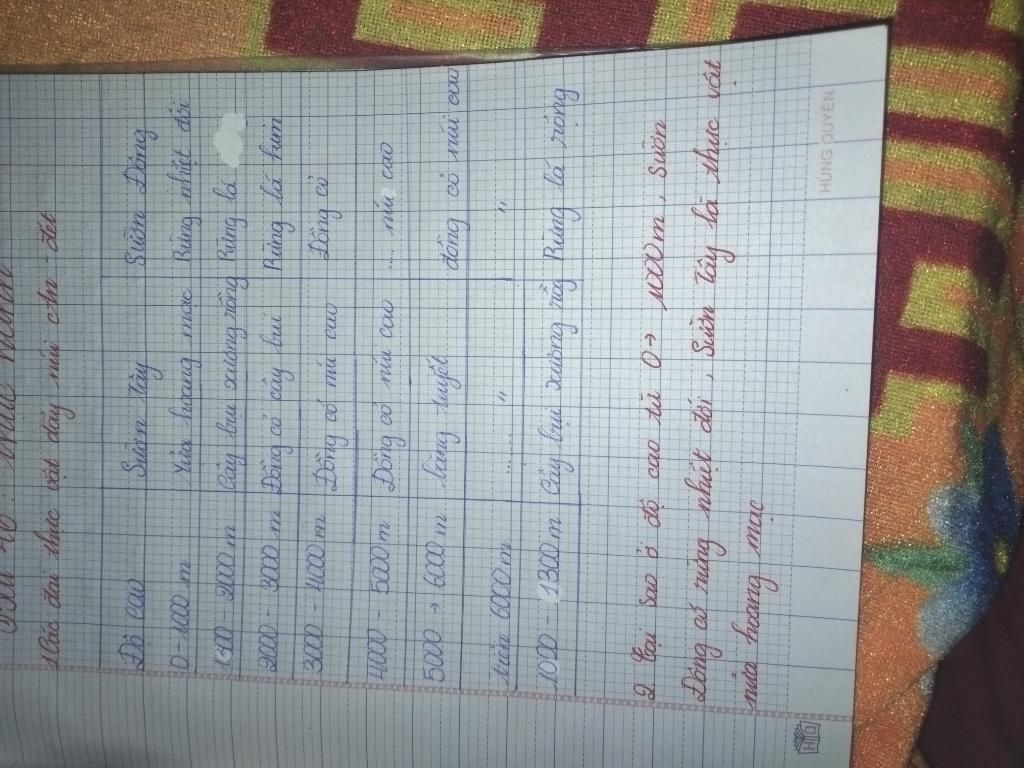 Các đai thực vật dãy núi An - đét
Độ cao Sườn Tây Sườn Đông
0 - 1000 m Nửa hoang mạc Rừng nhiệt đới
1300 - 2000 m Cây bụi xương rồng Rừng lá
2000 - 3000 m Đồng cỏ cây bụi Rừng lá kim
3000 - 4000 m Đồng cỏ núi cao Đồng cỏ
4000 - 5000 m Đồng cỏ núi cao .... núi cao
5000 → 6000 m băng tuyết đồng cỏ núi cao
trên 6000 m ...... " "
1000 - 1300 m Cây bụi xương rồng Rừng lá rộng
2 Tại sao ở độ cao từ 0 → 1000 m, Sườn
Đông có rừng nhiệt đới, Sườn Tây là thực vật
nửa hoang mạc
HÙNG QUYÊN
HQ